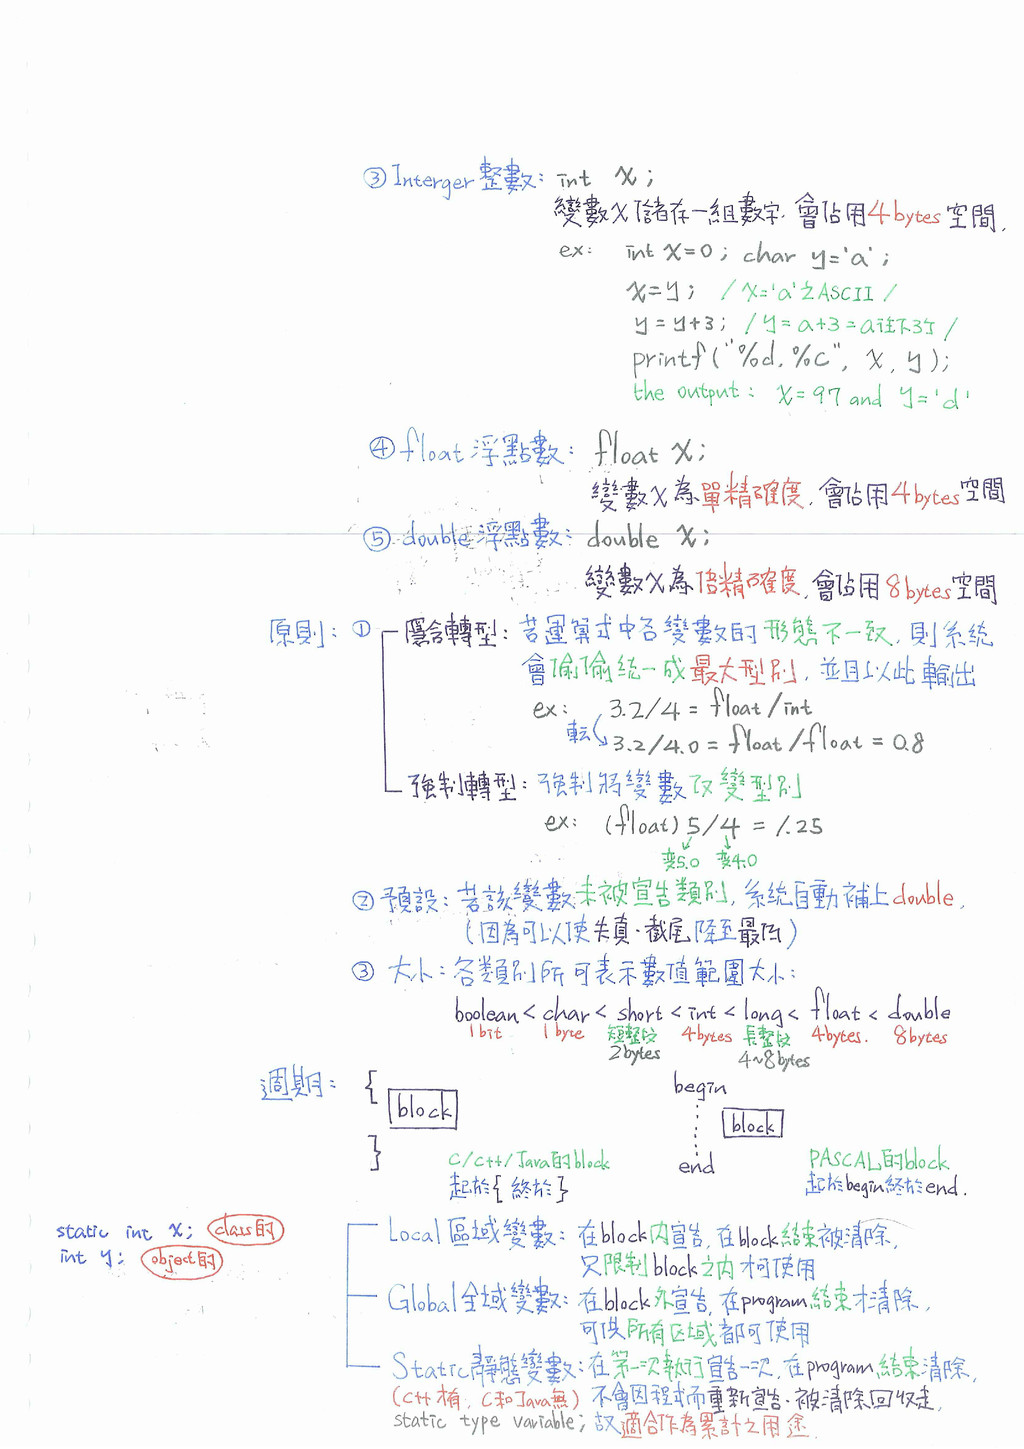 ③ Interger 整數: int x;
變數x儲存一組數字, 會佔用4bytes空間,
ex: int x=0; char y='a';
x=y; /x='a'之ASCII/
y=y+3; /y=a+3=a往下3個/
printf("%d,%c", x, y);
the output: x=97 and y='d'
④ float 浮點數: float x;
變數x為單精確度, 會佔用4bytes空間
⑤ double 浮點數: double x;
變數x為倍精確度, 會佔用8bytes空間
原則: ① 隱含轉型: 若運算式中各變數的形態不一致, 則系統
會偷偷統一成最大型別, 並且以此輸出
ex: 3.2/4 = float/int
転 3.2/4.0 = float/float = 0.8
強制轉型: 強制將變數改變型別
ex: (float) 5/4 = 1.25
変5.0 変4.0
② 預設: 若該變數未被宣告類別, 系統自動補上double,
(因為可以使失真·截尾降至最低)
③ 大小: 各類別所可表示數值範圍大小:
boolean < char < short < int < long < float < double
1bit 1byte 短整数 4bytes 長整数 4bytes. 8bytes
2bytes 4~8bytes
週期: { begin
block block
} end
C/C++/Java的block PASCAL的block
起於{ 終於} 起於begin終於end.
static int x; class的
int y; object的
Local 區域變數: 在block內宣告, 在block結束被清除,
只限制block之內才可使用
Global 全域變數: 在block外宣告, 在program結束才清除,
可供所有区域都可使用
Static靜態變數: 在第一次執行宣告一次, 在program結束清除,
(C++有, C和Java無) 不會因程式而重新宣告·被清除回收走,
static type variable; 故適合作為累計之用途.